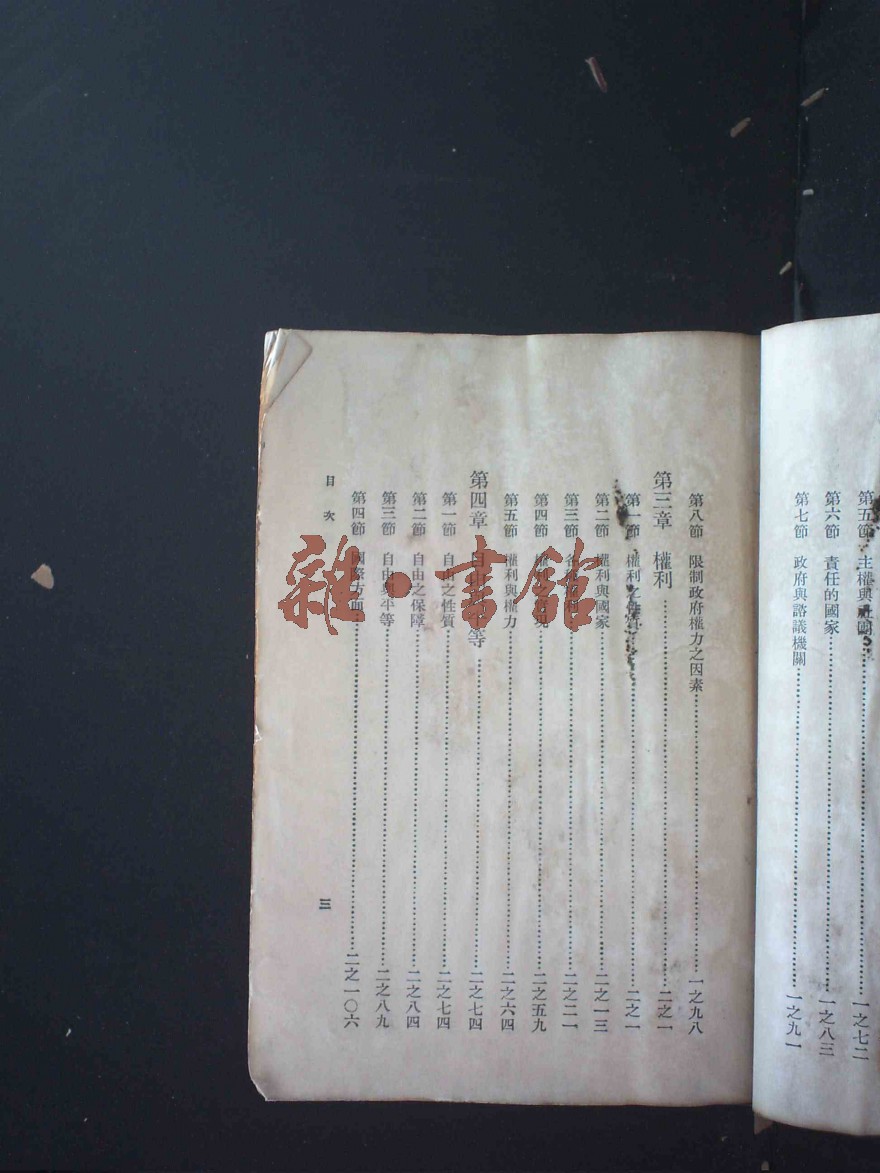 第五節 主權與社團……一之七二
第六節 責任的國家……一之八三
第七節 政府與諮議機關……一之九一
第八節 限制政府權力之因素……一之九八
第三章 權利……二之一
第一節 權利之性質……二之一
第二節 權利與國家……二之一三
第三節 各種權利……二之二一
第四節 權利之實現……二之五九
第五節 權利與權力……二之六四
第四章 自由與平等……二之七四
第一節 自由之性質……二之七四
第二節 自由之保障……二之八四
第三節 自由與平等……二之八九
第四節 國際方面……二之一〇六
目次
三
雜·書館